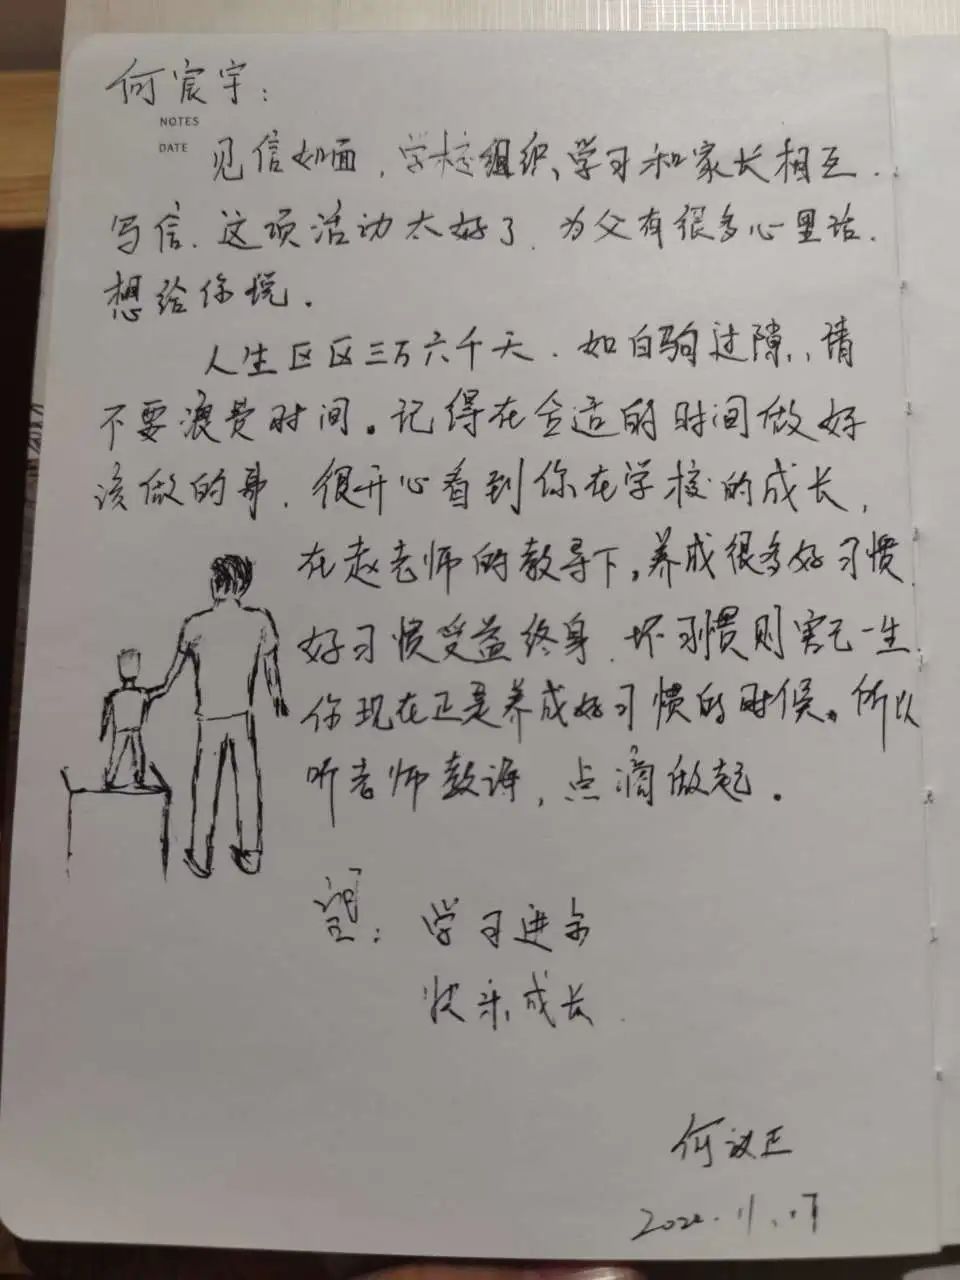 何宸宇：
NOTES
DATE
见信如面，学校组织学习和家长相互
写信，这项活动太好了，为父有很多心里话，
想给你说。
人生区区三万六千天，如白驹过隙，，请
不要浪费时间。记得在合适的时间做好
该做的事，很开心看到你在学校的成长，
在赵老师的教导下，养成很多好习惯，
好习惯受益终身，坏习惯则害己一生，
你现在正是养成好习惯的时候。所以
听老师教诲，点滴做起。
望：学习进步
快乐成长
何 正